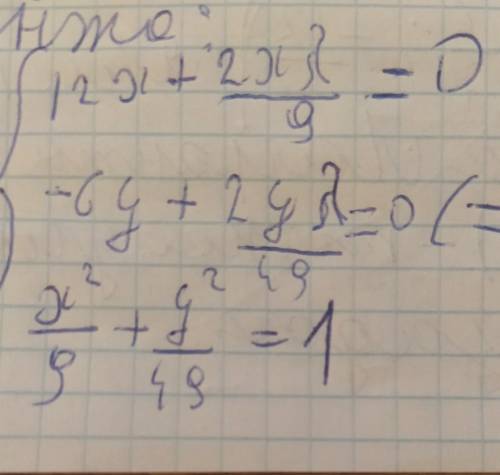 12x + 2xλ/9 = 0
-6y + 2yλ/49 = 0 (=
x²/9 + y²/49 = 1